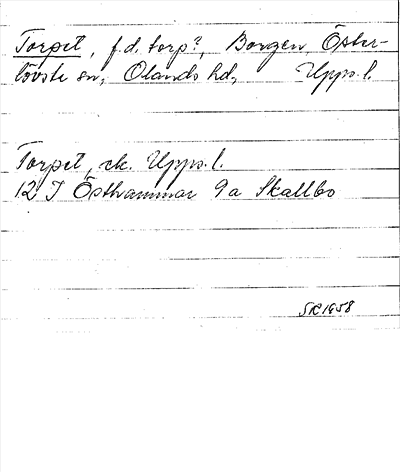 Torpet, f.d. torp?, Borgen, Öster-
lövsta sn, Olands hd, Upps.l.
Torpet, ek. Upps.l.
12 I Östhammar 9a Skallbo
SR 1658